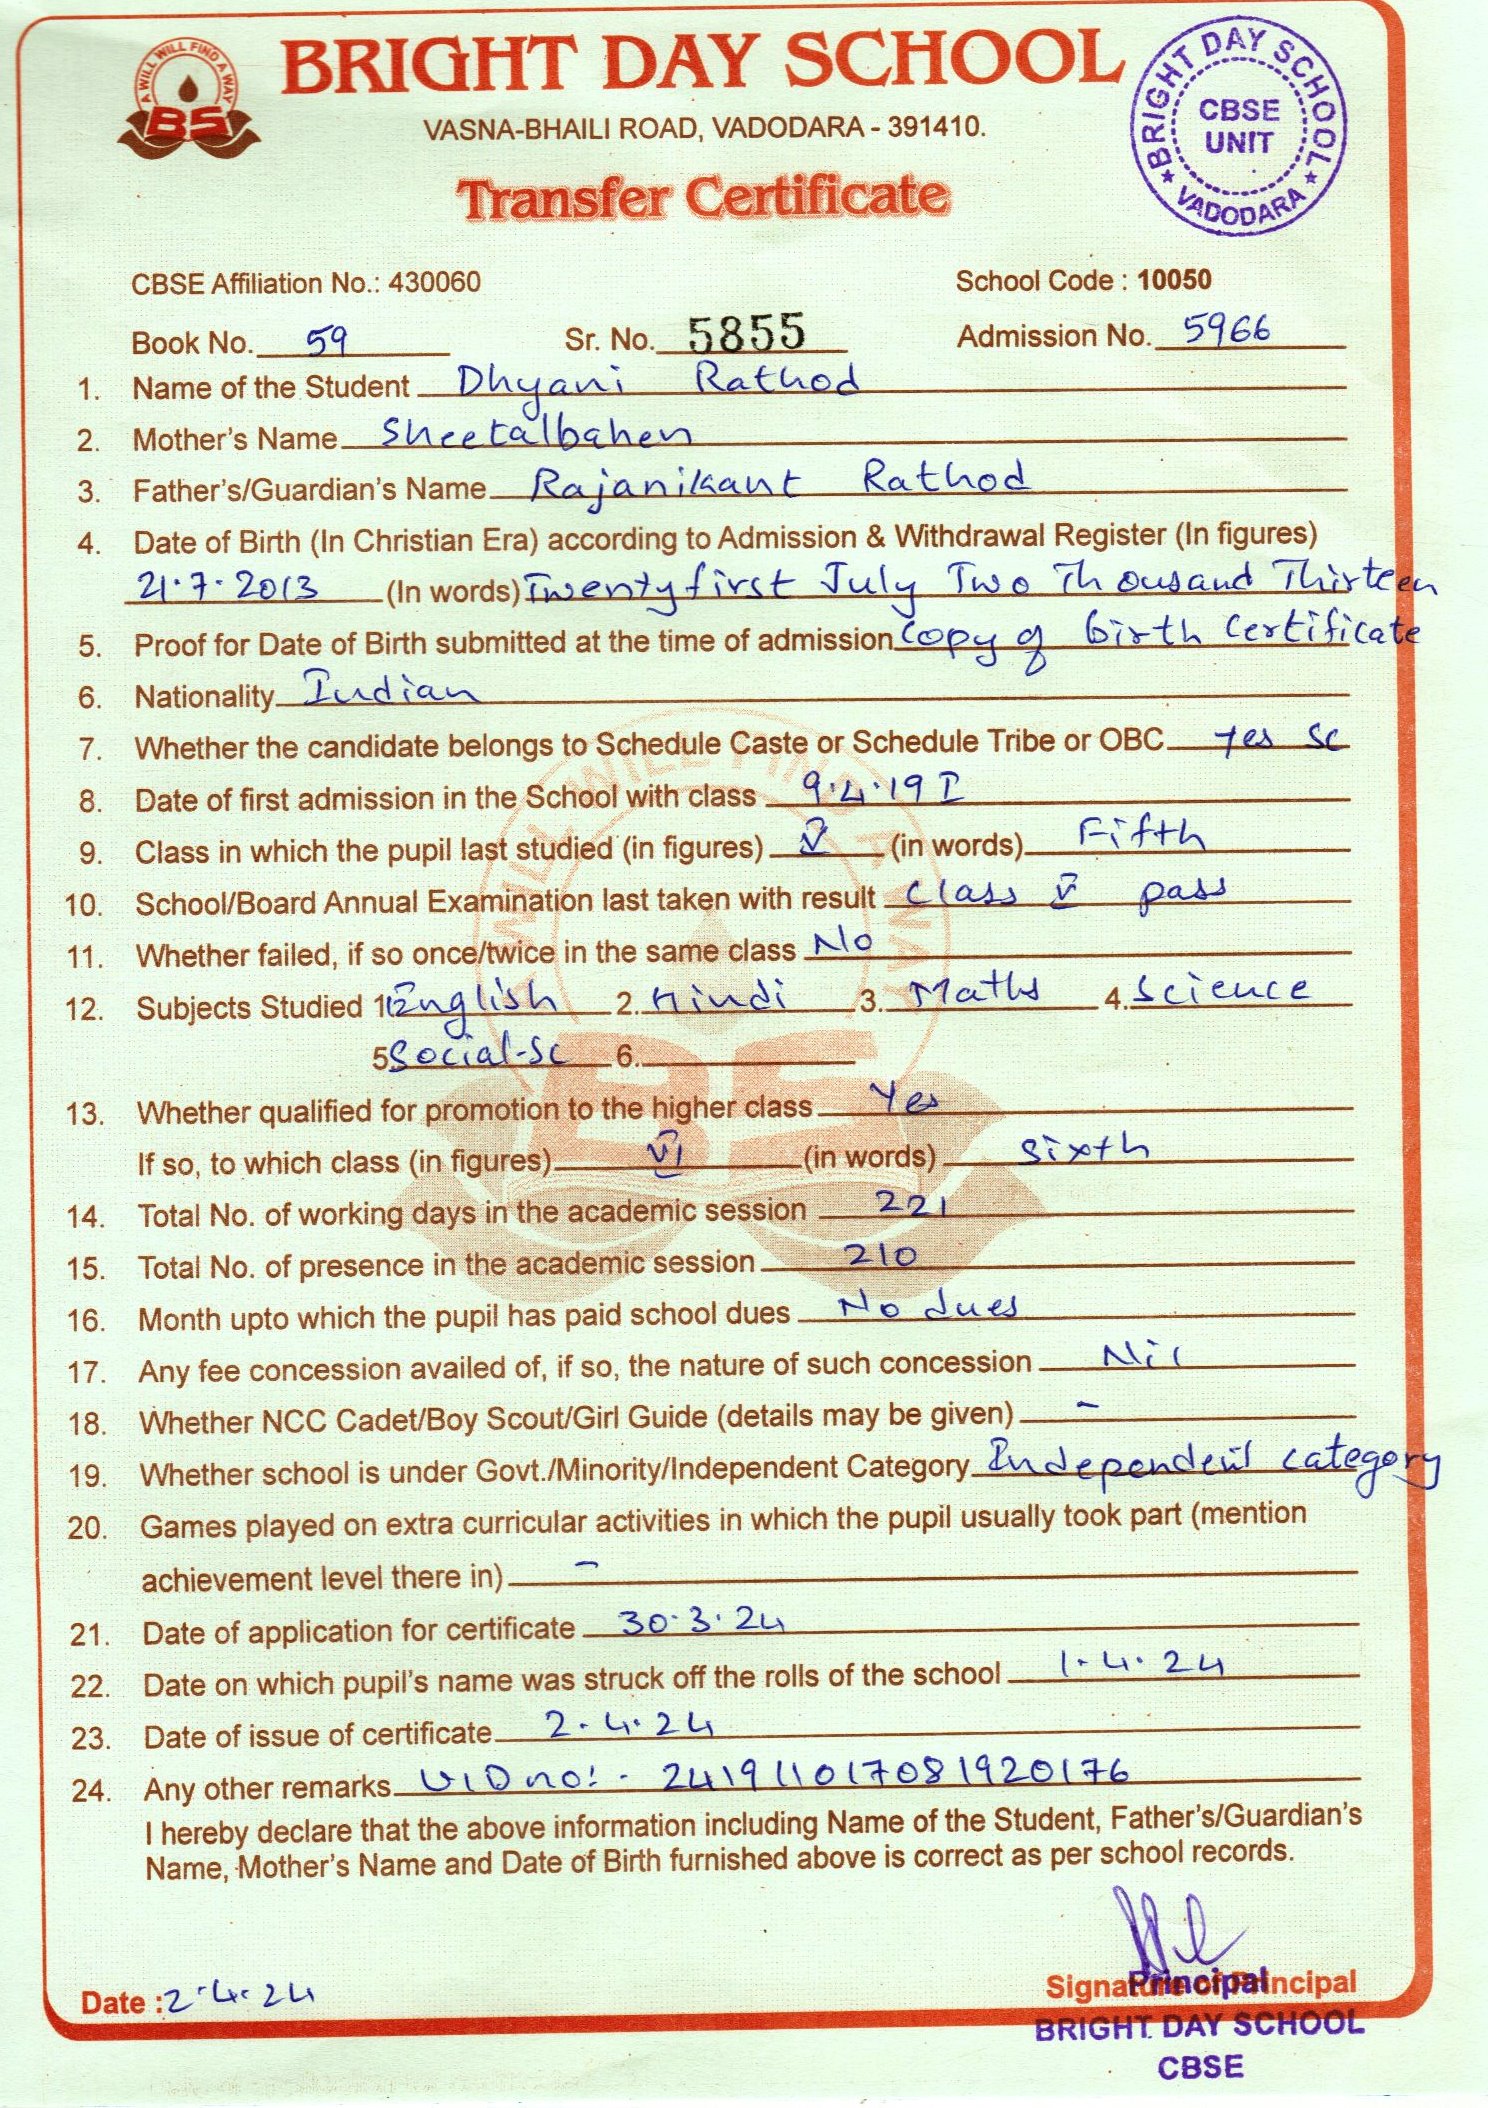 A WILL WILL FIND A WAY
BS
BRIGHT DAY SCHOOL
VASNA-BHAILI ROAD, VADODARA - 391410.
Transfer Certificate
BRIGHT DAY SCHOOL
CBSE
UNIT
★ VADODARA ★
CBSE Affiliation No.: 430060 School Code : 10050
Book No. 59 Sr. No. 5855 Admission No. 5966
1. Name of the Student Dhyani Rathod
2. Mother's Name Sheetalbahen
3. Father's/Guardian's Name Rajanikant Rathod
4. Date of Birth (In Christian Era) according to Admission & Withdrawal Register (In figures)
21.7.2013 (In words) Twenty first July Two Thousand Thirteen
5. Proof for Date of Birth submitted at the time of admission Copy of birth certificate
6. Nationality Indian
7. Whether the candidate belongs to Schedule Caste or Schedule Tribe or OBC yes SC
8. Date of first admission in the School with class 9.4.19 I
9. Class in which the pupil last studied (in figures) V (in words) Fifth
10. School/Board Annual Examination last taken with result Class V pass
11. Whether failed, if so once/twice in the same class No
12. Subjects Studied 1. English 2. Hindi 3. Maths 4. Science
5. Social-Sc 6.
13. Whether qualified for promotion to the higher class Yes
If so, to which class (in figures) VI (in words) Sixth
14. Total No. of working days in the academic session 221
15. Total No. of presence in the academic session 210
16. Month upto which the pupil has paid school dues No dues
17. Any fee concession availed of, if so, the nature of such concession Nil
18. Whether NCC Cadet/Boy Scout/Girl Guide (details may be given) -
19. Whether school is under Govt./Minority/Independent Category Independent category
20. Games played on extra curricular activities in which the pupil usually took part (mention
achievement level there in) -
21. Date of application for certificate 30.3.24
22. Date on which pupil's name was struck off the rolls of the school 1.4.24
23. Date of issue of certificate 2.4.24
24. Any other remarks UID no:- 241911017081920176
I hereby declare that the above information including Name of the Student, Father's/Guardian's
Name, Mother's Name and Date of Birth furnished above is correct as per school records.
Date : 2.4.24
Signature of Principal
Principal
BRIGHT DAY SCHOOL
CBSE